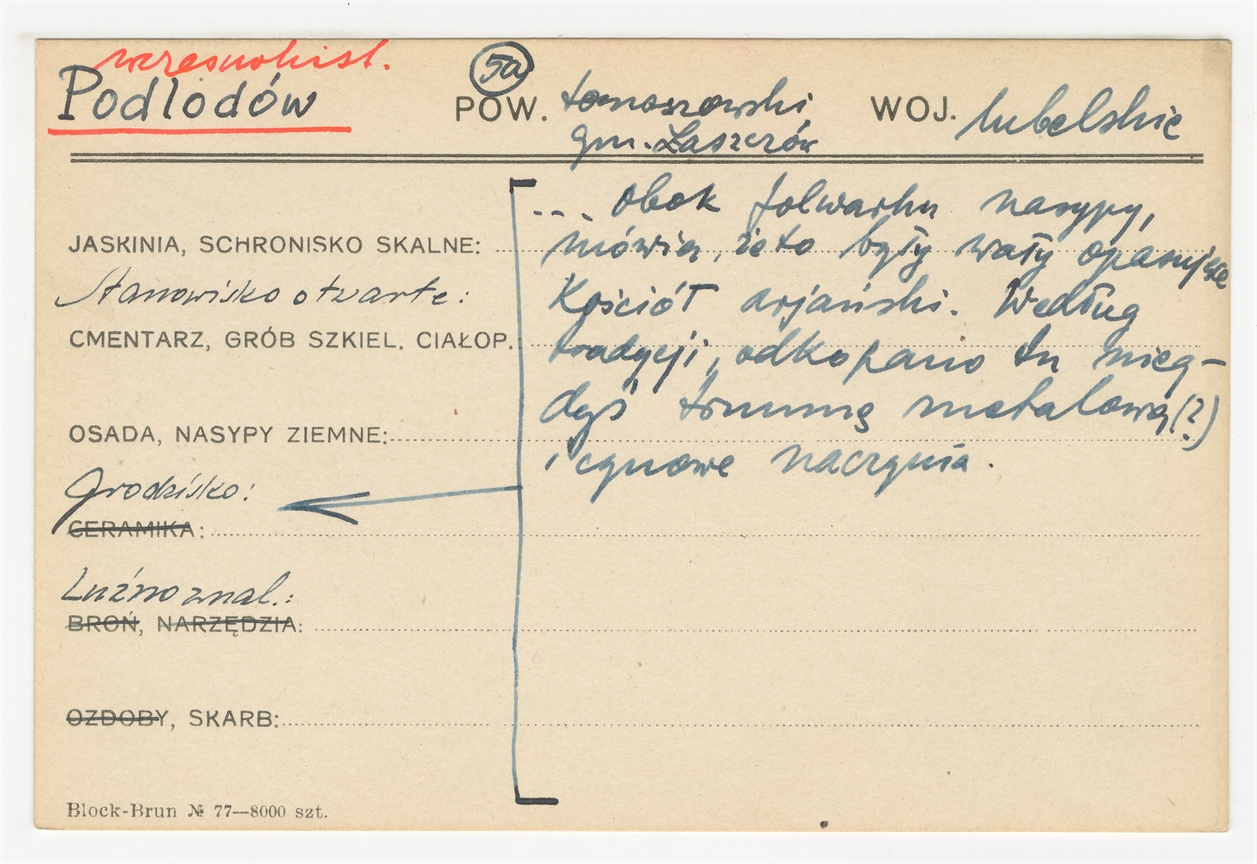 wczesnohist.
Podlodów
5a
POW. tomaszowski
gm. Łaszczów
WOJ. lubelskie
... obok folwarku nasypy,
JASKINIA, SCHRONISKO SKALNE:
mówią, że to były wały opasujące
Stanowisko otwarte:
Kościół arjański. Według
CMENTARZ, GRÓB SZKIEL. CIAŁOP.
tradycji, odkopano tu nieg-
dyś trumnę metalową (?)
OSADA, NASYPY ZIEMNE:
i cynowe naczynia.
Grodzisko:
CERAMIKA:
Luźno znal.:
BROŃ, NARZĘDZIA:
OZDOBY, SKARB:
Block-Brun № 77—8000 szt.